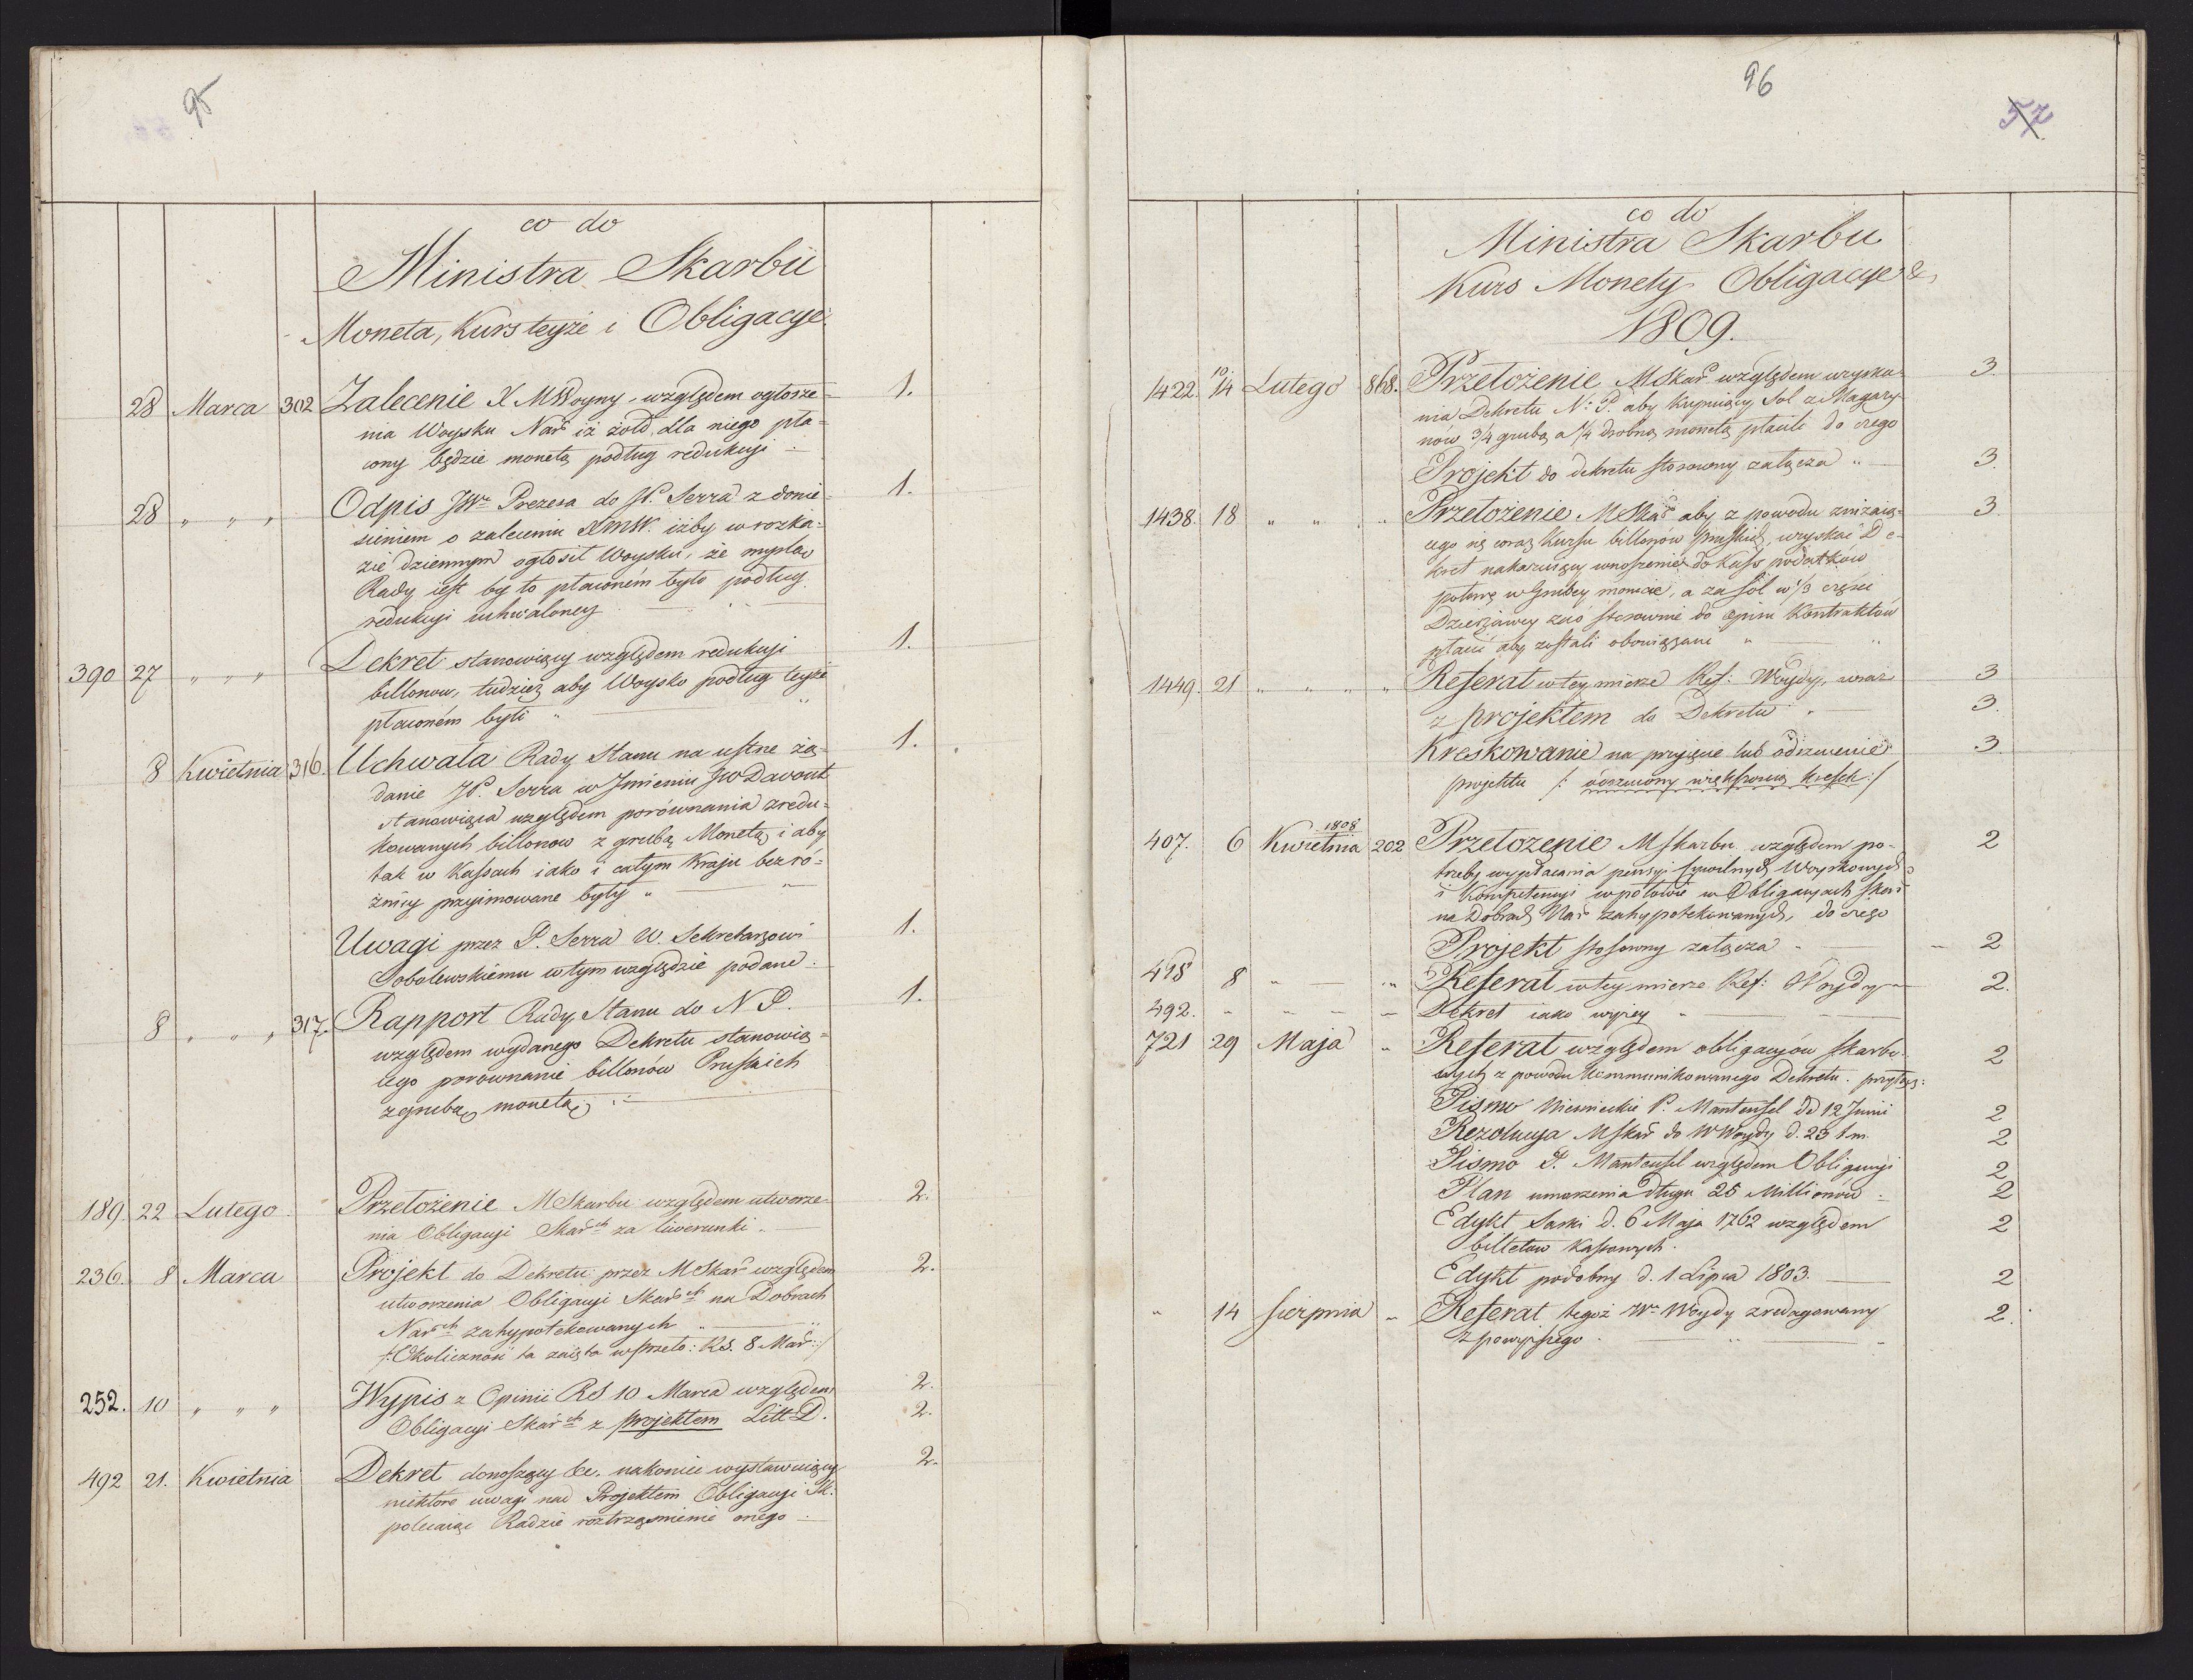 95
co do
Ministra Skarbu
Moneta, Kurs teyże i Obligacye
28 Marca 302 Zalecenie X MWoyny względem ogłosze=
nia Woysku Nar iż żołd dla niego pła=
cony będzie monetą podług redukcyi
1.
28 " " " Odpis JWo Prezesa do JP. Serra z donie=
sieniem o zaleceniu XMW. iżby w rozka=
zie dziennym ogłosił Woysku, że myślą
Rady iest by to płaconém było podług
redukcyi uchwaloney
1.
390 27 " " " Dekret stanowiący względem redukcyi
billonow, tudzież aby Woysko podług teyże
płaconém byli "
1.
8 Kwietnia 316. Uchwała Rady Stanu na ustne żą=
danie JP. Serra w Imieniu JW Davout
stanowiąca względem porównania zredu=
kowanych billonow z grubą Monetą i aby
tak w Kassach iako i całym Kraju bez ró=
żnicy przyimowane były "
1.
Uwagi przez P. Serra W. Sekretarzowi
Sobolewskiemu w tym względzie podane.
1.
8 " " " 317. Rapport Rady Stanu do N P.
względem wydanego Dekretu stanowią=
cego porównanie billonów Pruskich
z grubą monetą
1.
189. 22 Lutego Przełożenie MSkarbu względem utworze=
nia Obligacyi Skarch za liwerunki.
2.
236. 8 Marca Projekt do Dekretu przez MSkar względem
utworzenia Obligacyi Skarch na Dobrach
Narch zahypotekowanych
/: Okoliczność ta zaięta w przeło: RS. 8 Mar:/
2.
252. 10 " " " Wypis z Opinii RS 10 Marca względem
Obligacyi Skarch z projektem Litt D.
2.
2.
492 21. Kwietnia Dekret donoszący &c. nakoniec wystawuiący
niektóre uwagi nad Projektem Obligacyi Sk:
polecaiąc Radzie roztrząśnienie onego
2.
96
57
co do
Ministra Skarbu
Kurs Monety Obligacye &
1809.
1422. 10/14 Lutego 868. Przełożenie MSkar względem uzyska
nia Dekretu N: P. aby kupuiący Sol z Magazy
nów 3/4 grubą a 1/4 drobną monetą płacili do czego
3.
Projekt do dekretu stosowny załącza "
3.
1438. 18 " " " Przełożenie MSkar aby z powodu zniżaią=
cego się coraz kursu billonów pruskich, uzyskać De=
kret nakazuiący wnoszenie do Kass podatków
połowę w Grubey monecie, a za sól w 1/3 części
Dzierżawcy zaś stosownie do opinii Kontraktów
płacić aby zostali obowiązani "
3
1449. 21 " " " " Referat w tey mierze Ref: Woydy, wraz
3
z projektem do Dekretu
3.
Kreskowanie na przyjęcie lub odrzucenie
projektu /: odrzucony większością kresek:/
3
407. 6 1808 Kwietnia 202 Przełożenie Mskarbu względem po=
trzeby wypłacania pensyi Cywilnych Woyskowych
i Kompetencyi w połowie w Obligacyach skar
na Dobrach Nar zahypotekowanych, do czego
2
Projekt stosowny załącza
2
418 8 " " Referat w tey mierze Ref: Woydy
2.
492. " " " Dekret iako wyżey "
721 29 Maja " Referat względem obligacyów skarbo
wych z powodu kommunikowanego Dekretu. przyłącz:
2
Pismo Niemieckie P. Manteufel dd 12 Junii
2
Rezolucya MSkar do W Woydy d. 23 t m.
2
Pismo P. Manteufel względem Obligacyi
2
Plan umorzenia długu 25 Millionów
2
Edykt Saski d. 6 Maja 1762 względem
billetow kassowych.
2
Edykt podobny d. 1 Lipca 1803.
2
" 14 Sierpnia " Referat tegoż Wo Woydy zredagowany
z powyższego
2.